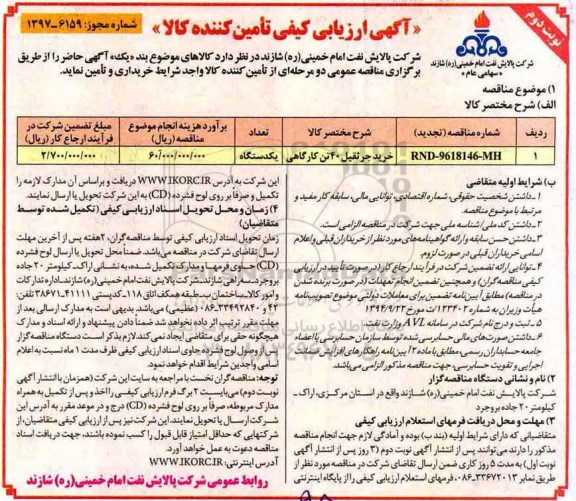 نوبت دوم
« آگهی ارزیابی کیفی تأمین کننده کالا »
شماره مجوز: ۶۱۵۹-۱۳۹۷
شرکت پالایش نفت امام خمینی(ره) شازند
«سهامی عام»
شرکت پالایش نفت امام خمینی(ره) شازند در نظر دارد کالاهای موضوع بند «یک» آگهی حاضر را از طریق
برگزاری مناقصه عمومی دو مرحله‌ای از تأمین کننده کالا واجد شرایط خریداری و تأمین نماید.
۱) موضوع مناقصه
الف) شرح مختصر کالا
ردیف شماره مناقصه (تجدید) شرح مختصر کالا تعداد برآورد هزینه انجام موضوع مناقصه (ریال) مبلغ تضمین شرکت در فرآیند ارجاع کار (ریال)
۱ RND-9618146-MH خرید جرثقیل ۴۰ تن کارگاهی یکدستگاه ۶۰/۰۰۰/۰۰۰/۰۰۰ ۲/۷۰۰/۰۰۰/۰۰۰
ب) شرایط اولیه متقاضی
۱ـ داشتن شخصیت حقوقی، شماره اقتصادی، توانایی مالی، سابقه کار مفید و
مرتبط با موضوع مناقصه.
۲ـ داشتن کد ملی/شناسه ملی جهت شرکت در مناقصه الزامی است.
۳ـ داشتن حسن سابقه و ارائه گواهینامه‌های مورد نظر از خریداران قبلی و اعلام
اسامی خریداران قبلی در صورت لزوم.
۴ـ توانایی ارائه تضمین شرکت در فرآیند ارجاع کار (در صورت تأیید در ارزیابی
کیفی مناقصه‌گران) و همچنین تضمین انجام تعهدات (در صورت برنده شدن
در مناقصه) مطابق آیین‌نامه تضمین برای معاملات دولتی موضوع تصویب‌نامه
هیأت وزیران به شماره ۱۲۳۴۰۲/ت مورخ ۱۳۹۴/۹/۲۲
۵ـ ثبت و درج نام شرکت در سامانه AVL وزارت نفت
۶ـ داشتن صورت‌های مالی حسابرسی شده توسط سازمان حسابرسی یا اعضاء
جامعه حسابداران رسمی مطابق با ماده ۲ آیین‌نامه راهکارهای افزایش ضمانت
اجرایی و تقویت حسابرسی، جهت مناقصه مذکور الزامی می‌باشد.
۲) نام و نشانی دستگاه مناقصه گزار
شرکت پالایش نفت امام خمینی(ره) شازند واقع در استان مرکزی، اراک ـ
کیلومتر ۲۰ جاده بروجرد
۳) مهلت و محل دریافت فرمهای استعلام ارزیابی کیفی
متقاضیانی که دارای شرایط اولیه (بند ب) بوده و آمادگی لازم جهت انجام مناقصه
مذکور را دارند می‌توانند پس از انتشار آگهی نوبت دوم (۳ روز پس از انتشار آگهی
نوبت اول) به مدت ۵ روز کاری ضمن ارسال تقاضای شرکت در مناقصه مورد نظر از
طریق نمابر ۱۳-۰۸۶-۳۳۶۷۲۰، فرمهای استعلام ارزیابی کیفی را از پایگاه اینترنتی
این شرکت به آدرس WWW.IKORC.IR دریافت و براساس آن مدارک لازمه را
تکمیل و صرفاً بر روی لوح فشرده (CD) به این شرکت تحویل یا ارسال نمایند.
۴) زمان و محل تحویل اسناد ارزیابی کیفی (تکمیل شده توسط
متقاضیان)
زمان تحویل اسناد ارزیابی کیفی توسط مناقصه‌گران، ۲ هفته پس از آخرین مهلت
ارسال تقاضای شرکت در مناقصه می‌باشد. ضمناً محل تحویل یا ارسال لوح فشرده
(CD) حاوی فرمها و مدارک تکمیل شده، به نشانی اراک، کیلومتر ۲۰ جاده
بروجرد، سه راهی شازند، شرکت پالایش نفت امام خمینی(ره) شازند، اداره تدارکات
و امور کالا، ساختمان ب، طبقه همکف اتاق ۱۱۸ ـ کدپستی ۴۱۱۱۱-۳۸۶۷۱ تلفن:
۴۲ و ۳۳۴۹۲۸۴۰-۰۸۶ (عظیمی) می‌باشد. بدیهی است به مدارک ارسالی بعد از
مهلت مقرر ترتیب اثر داده نخواهد شد ضمناً دادن پیشنهاد و ارائه اسناد و مدارک
هیچگونه حقی برای متقاضی ایجاد نمی‌کند. لازم بذکر است دستگاه مناقصه گزار
پس از وصول لوح فشرده حاوی اسناد ارزیابی کیفی ظرف مدت ۱ ماه نسبت به اعلام
اسامی واجدین شرایط اقدام خواهد نمود.
توجه: مناقصه‌گران نخست با مراجعه به سایت این شرکت (همزمان با انتشار آگهی
نوبت دوم) می‌بایست ۲ برگ فرم ارزیابی کیفی را اخذ و پس از تکمیل به همراه
مدارک مربوطه، صرفاً بر روی لوح فشرده (CD) درج و در موعد مقرر به آدرس این
شرکت ارسال یا تحویل نمایند. این شرکت نیز پس از ارزیابی کیفی متقاضیان، از
شرکتهایی که حداقل امتیاز قابل قبول را کسب نموده باشند، جهت دریافت اسناد
مناقصه دعوت به عمل خواهد آورد.
آدرس اینترنتی: WWW.IKORC.IR
روابط عمومی شرکت پالایش نفت امام خمینی(ره) شازند